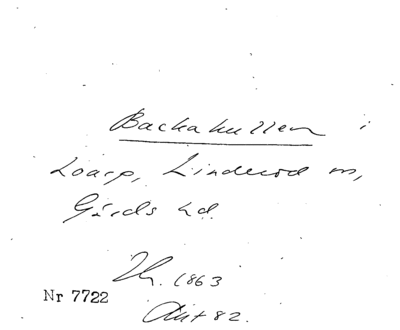 Backakullen i
Loarp, Linderöd sn,
Gärds hd.
1863
Nr 7722
Akt 82.